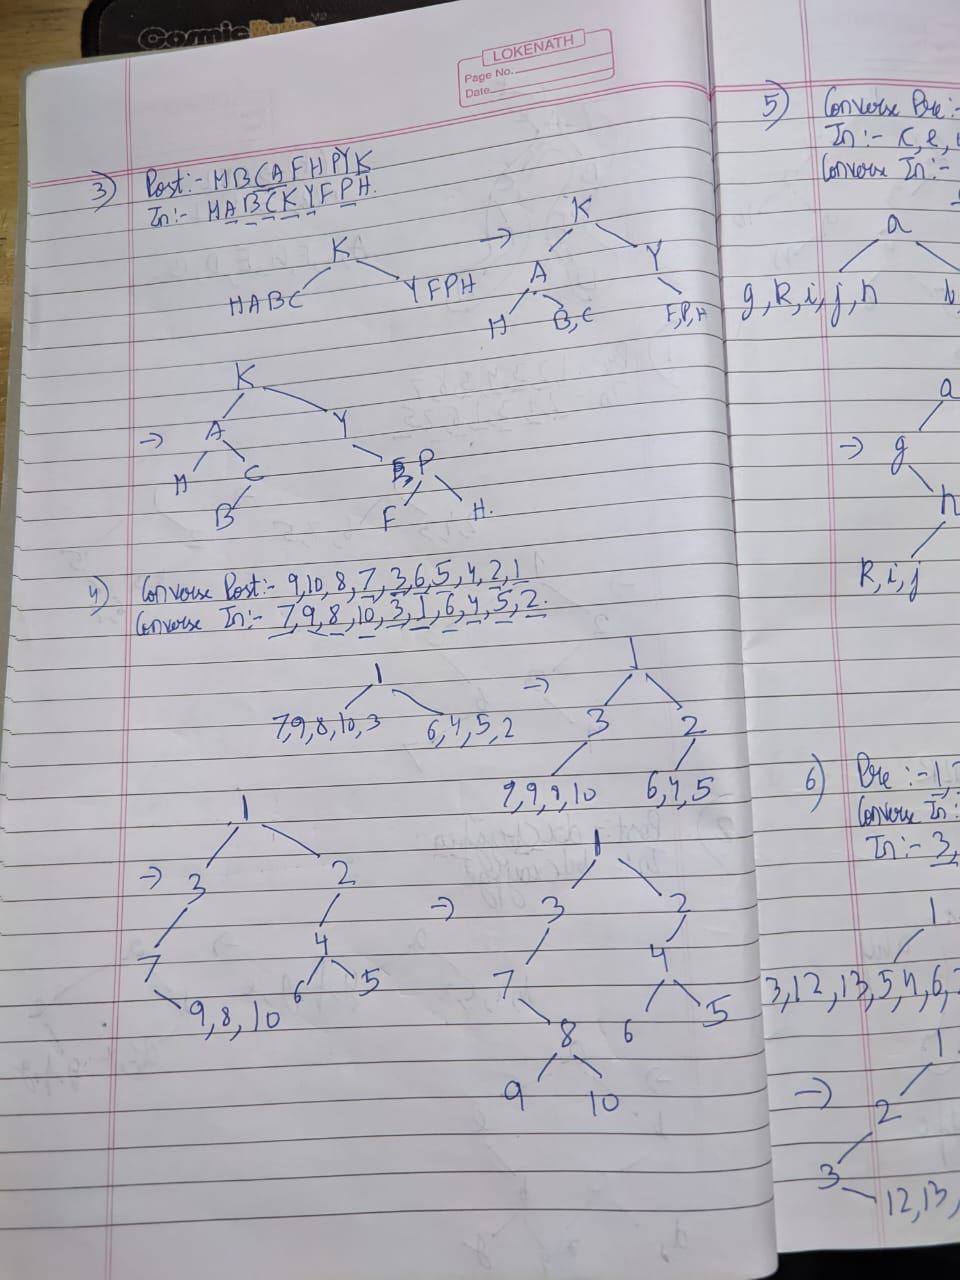 LOKENATH
Page No.
Date
3) Post:- HBCAFHPYK
In:- HABCKYFPH.
K
HABC YFPH
→ K
A Y
H B,C F,P,H
→ K
A Y
H C P
B F H.
4) Converse Post:- 9,10,8,7,3,6,5,4,2,1
Converse In:- 7,9,8,10,3,1,6,4,5,2.
1
7,9,8,10,3 6,4,5,2
→ 1
3 2
7,9,8,10 6,4,5
→ 1
3 2
7 4
9,8,10 6 5
→ 1
3 2
7 4
8 6 5
9 10
5) Converse Pre:-
In:- K, e,
Converse In:-
a
g,k,i,j,h b
→ a
g
h
k,i,j
6) Pre:- 1,
Converse In:
In:- 3,
1
3,12,13,5,4,6,
→ 1
2
3
12,13,